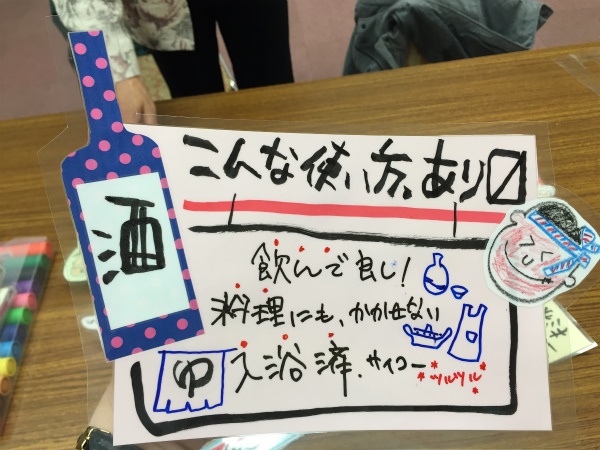 酒
こんな使い方、あり〼
飲んで良し!
料理にも、かかせない
ゆ 入浴済、サイコー
ツルツル